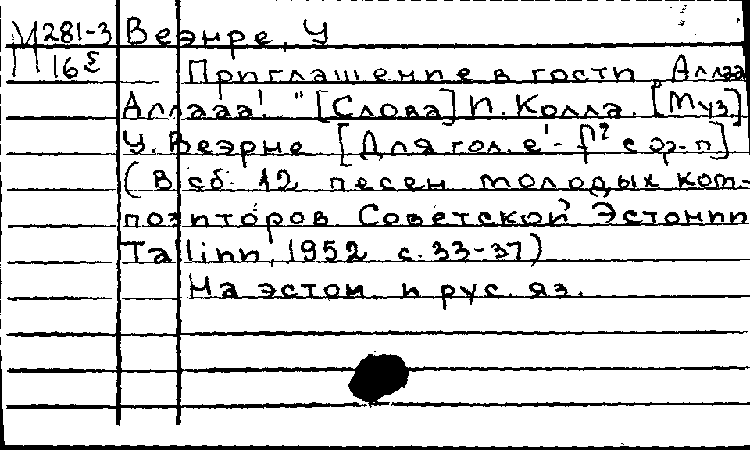 М 281-3 Веэнре, У
16
Приглашение в гости „Аллаа
Аллааа!" [Слова] П. Колла. [Муз]
У. Веэрне [Для гол. e¹- f² с ор-п]
(В сб. 12 песен молодых ком-
позиторов Советской Эстонии
Tallinn, 1952 с. 33-37)
На эстон. и рус. яз.